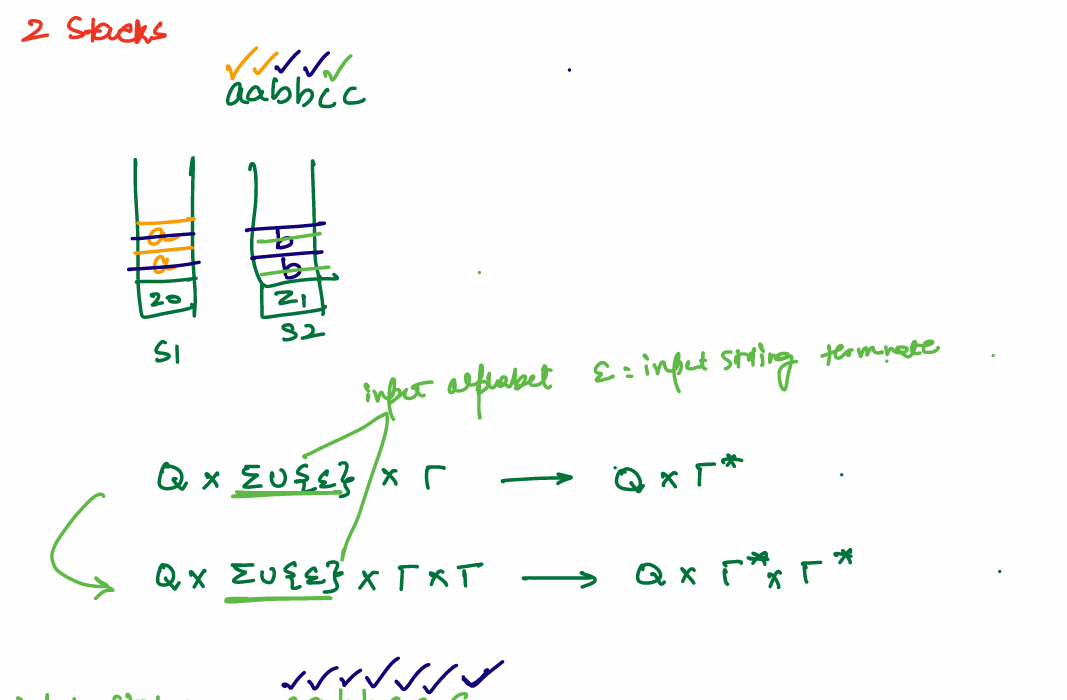 2 Stacks
aabbcc
a b
a b
Z0 Z1
S1 S2
input alphabet ε = input string terminate
Q × Σ∪{ε} × Γ → Q × Γ*
Q × Σ∪{ε} × Γ × Γ → Q × Γ* × Γ*